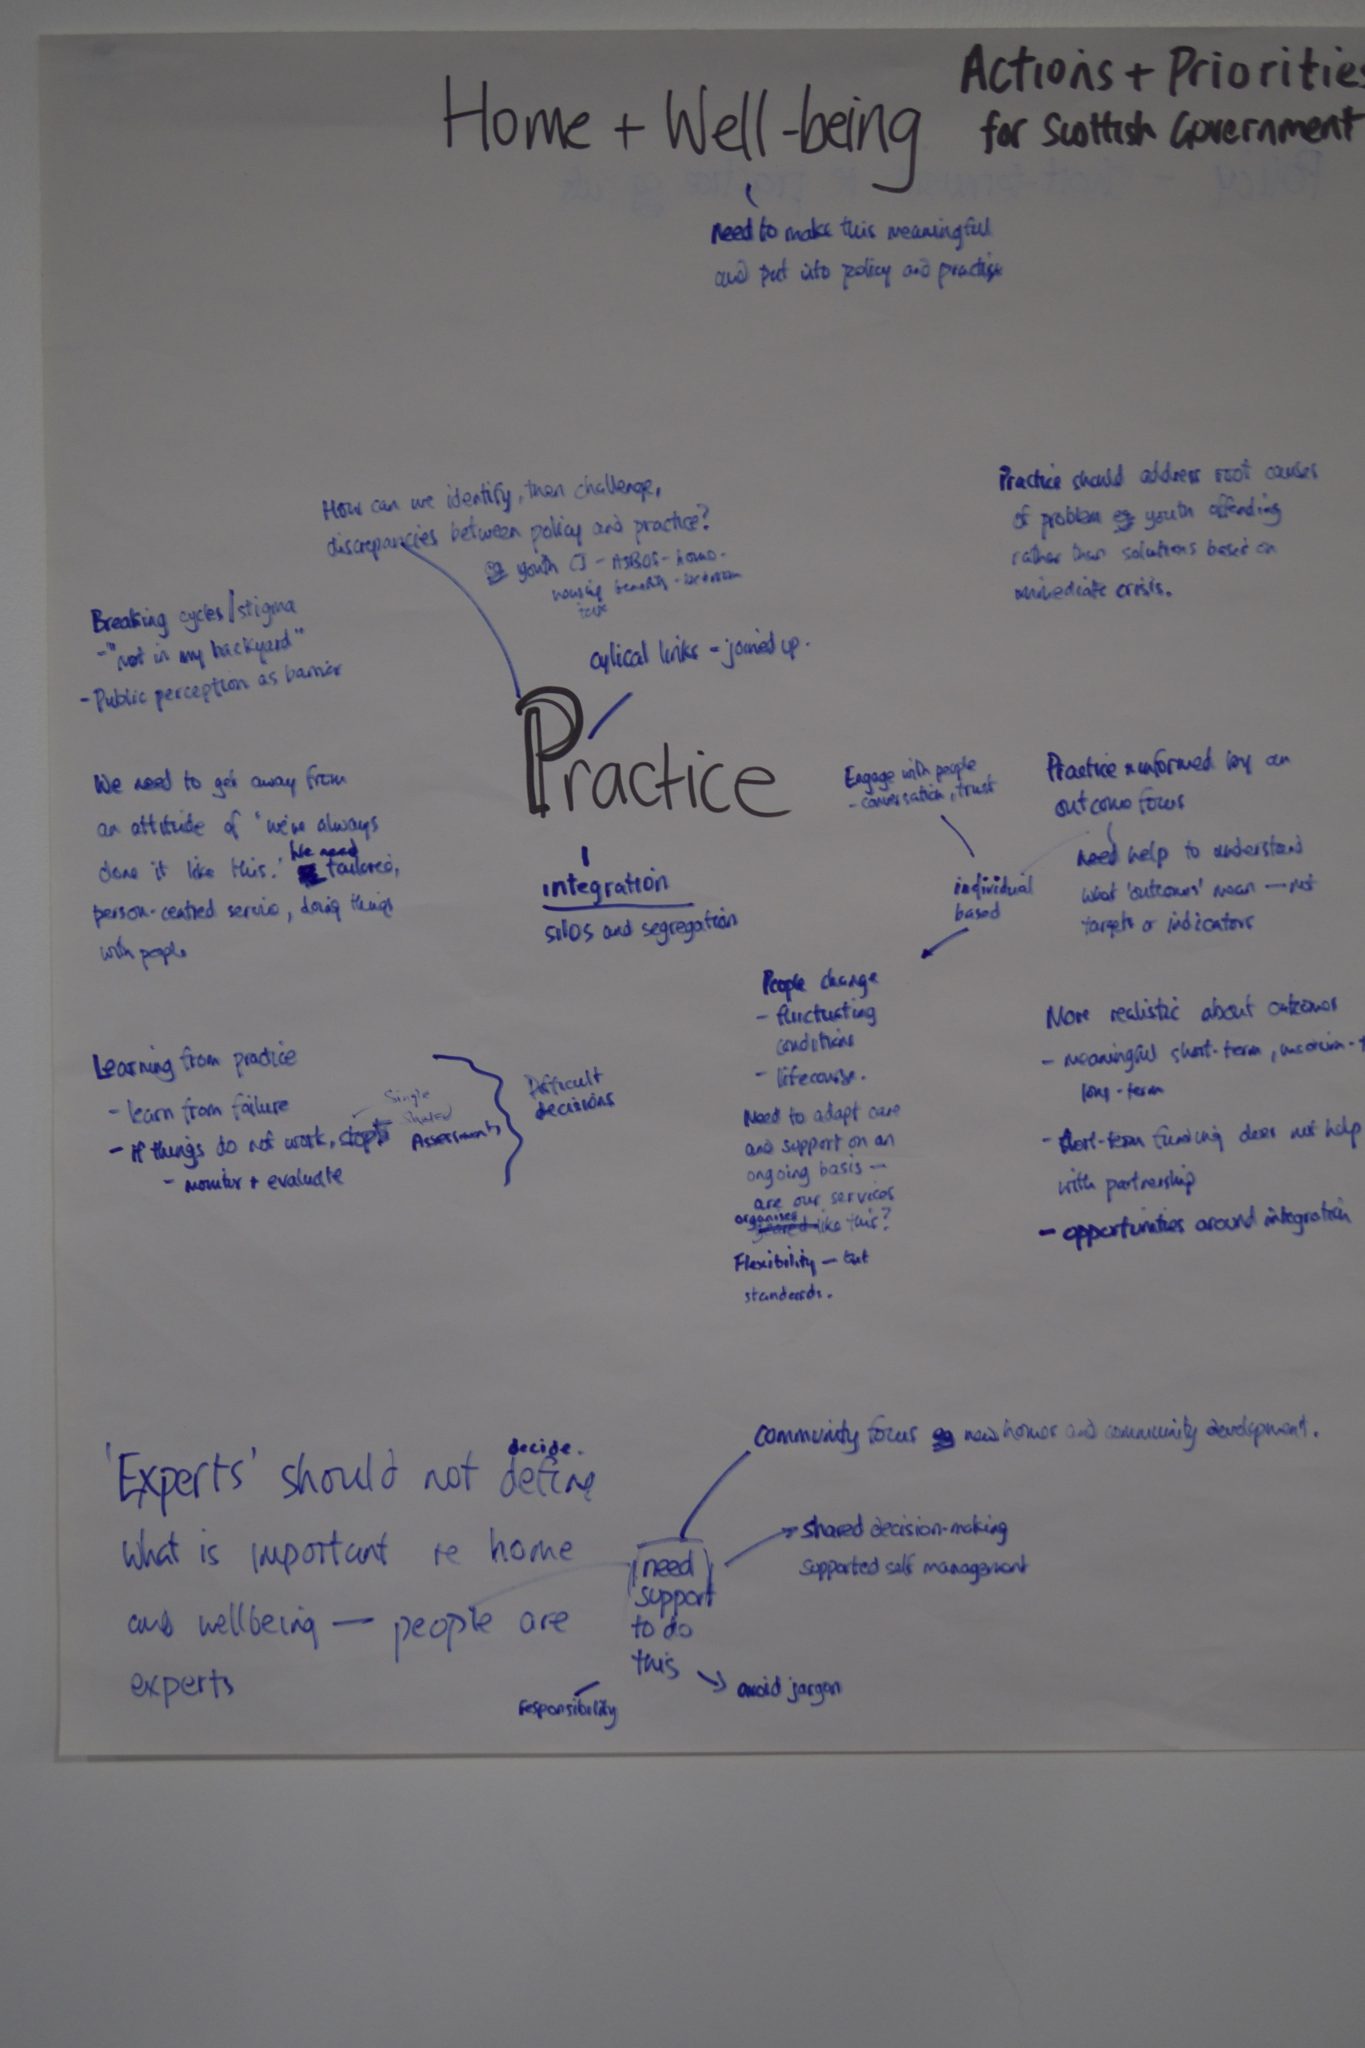 Home + Well-being
Actions + Priorities
for Scottish Government
Need to make this meaningful
and put into policy and practise
How can we identify, then challenge,
discrepancies between policy and practice?
eg youth CJ - ASBOS - home-
housing benefits - bedroom
tax
Practice should address root causes
of problem eg youth offending
rather than solutions based on
immediate crisis.
Breaking cycles/stigma
- "not in my backyard"
- Public perception as barrier
cylical links - joined up.
Practice
integration
silos and segregation
We need to get away from
an attitude of 'we've always
done it like this.' We need tailored,
person-centred service, doing things
with people
Engage with people
- conversation, trust
individual
based
Practice informed by an
outcome focus
Need help to understand
what 'outcomes' mean — not
targets or indicators
People change
- fluctuating
conditions
- lifecourse.
Need to adapt care
and support on an
ongoing basis —
are our services
organised
geared like this?
Flexibility — but
standards.
More realistic about outcomes
- meaningful short-term, medium-
long-term
- Short-term funding does not help
with partnership
- opportunities around integration
Learning from practice
- learn from failure
- if things do not work, stop
- monitor + evaluate
Single
Shared
Assessments
Difficult
decisions
'Experts' should not define
decide.
what is important re home
and wellbeing — people are
experts
need
support
to do
this
Community focus eg new homes and community development.
shared decision-making
supported self management
avoid jargon
responsibility